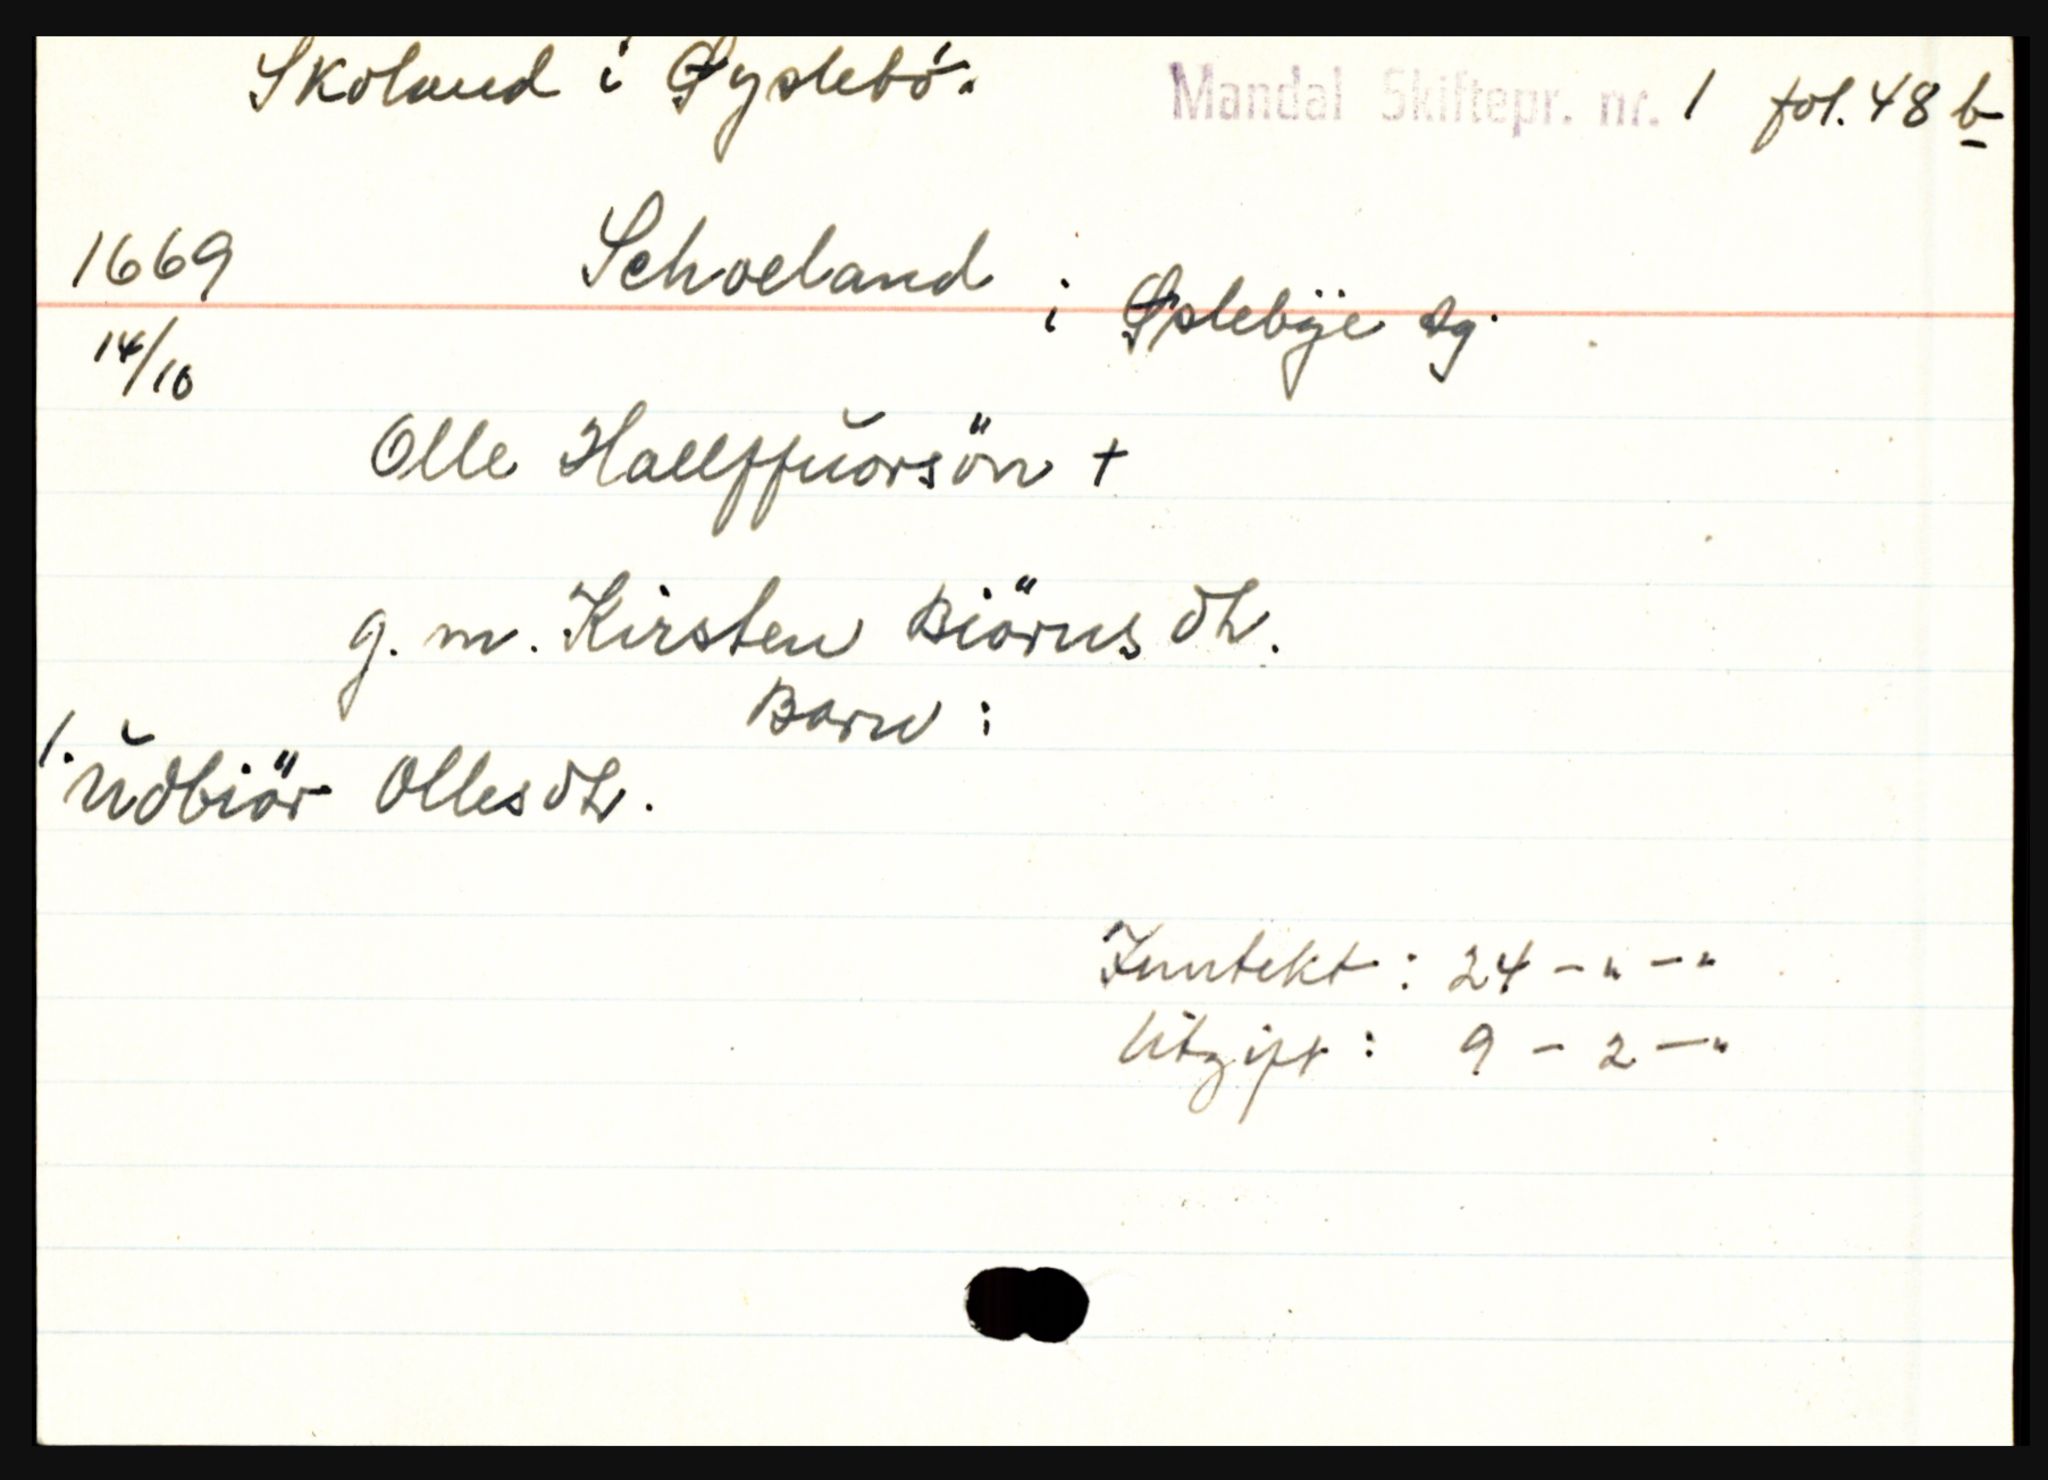 Skoland i Øyslebö.
Mandal Skiftepr. nr. 1 fol. 48 b
1669 Schoeland i Øslebÿe sg.
14/10
Olle Hallffŭorsön +
g. m. Kirsten Biörns dtr.
Barn :
1. Ŭdbiör Ollesdtr.
Inntekt : 24 - " - "
Utgift : 9 - 2 - "